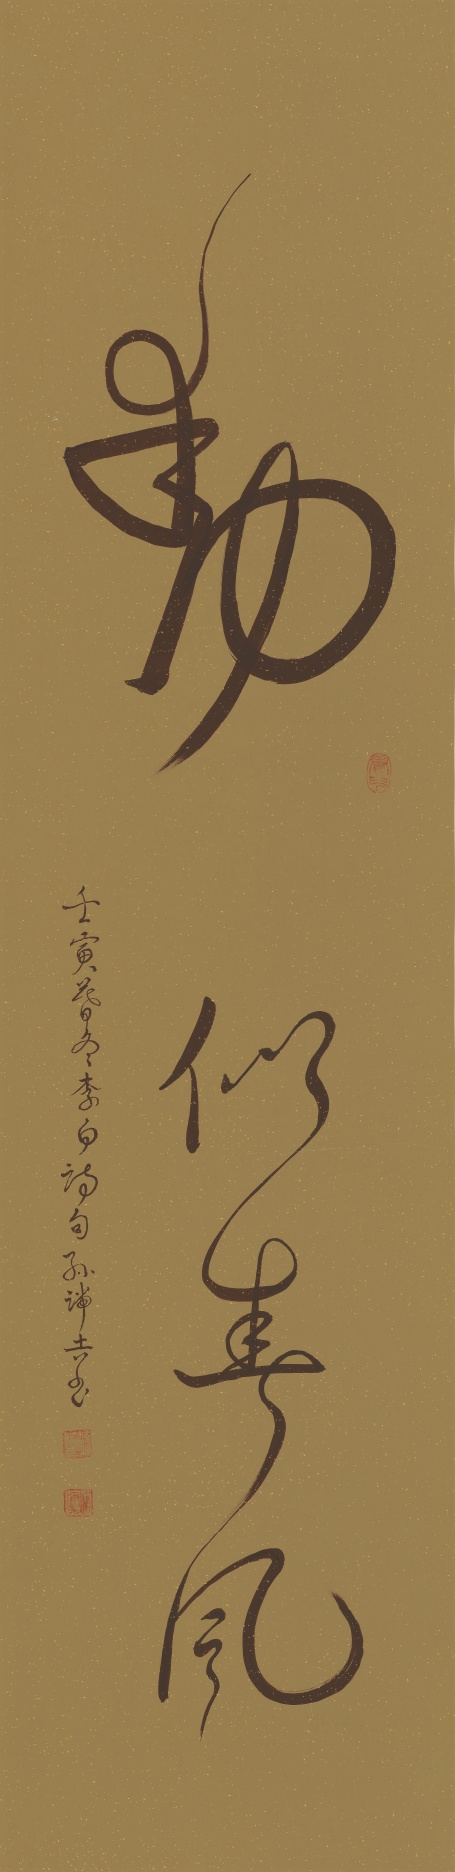 動似春風
壬寅暮冬李白詩句孫吉書